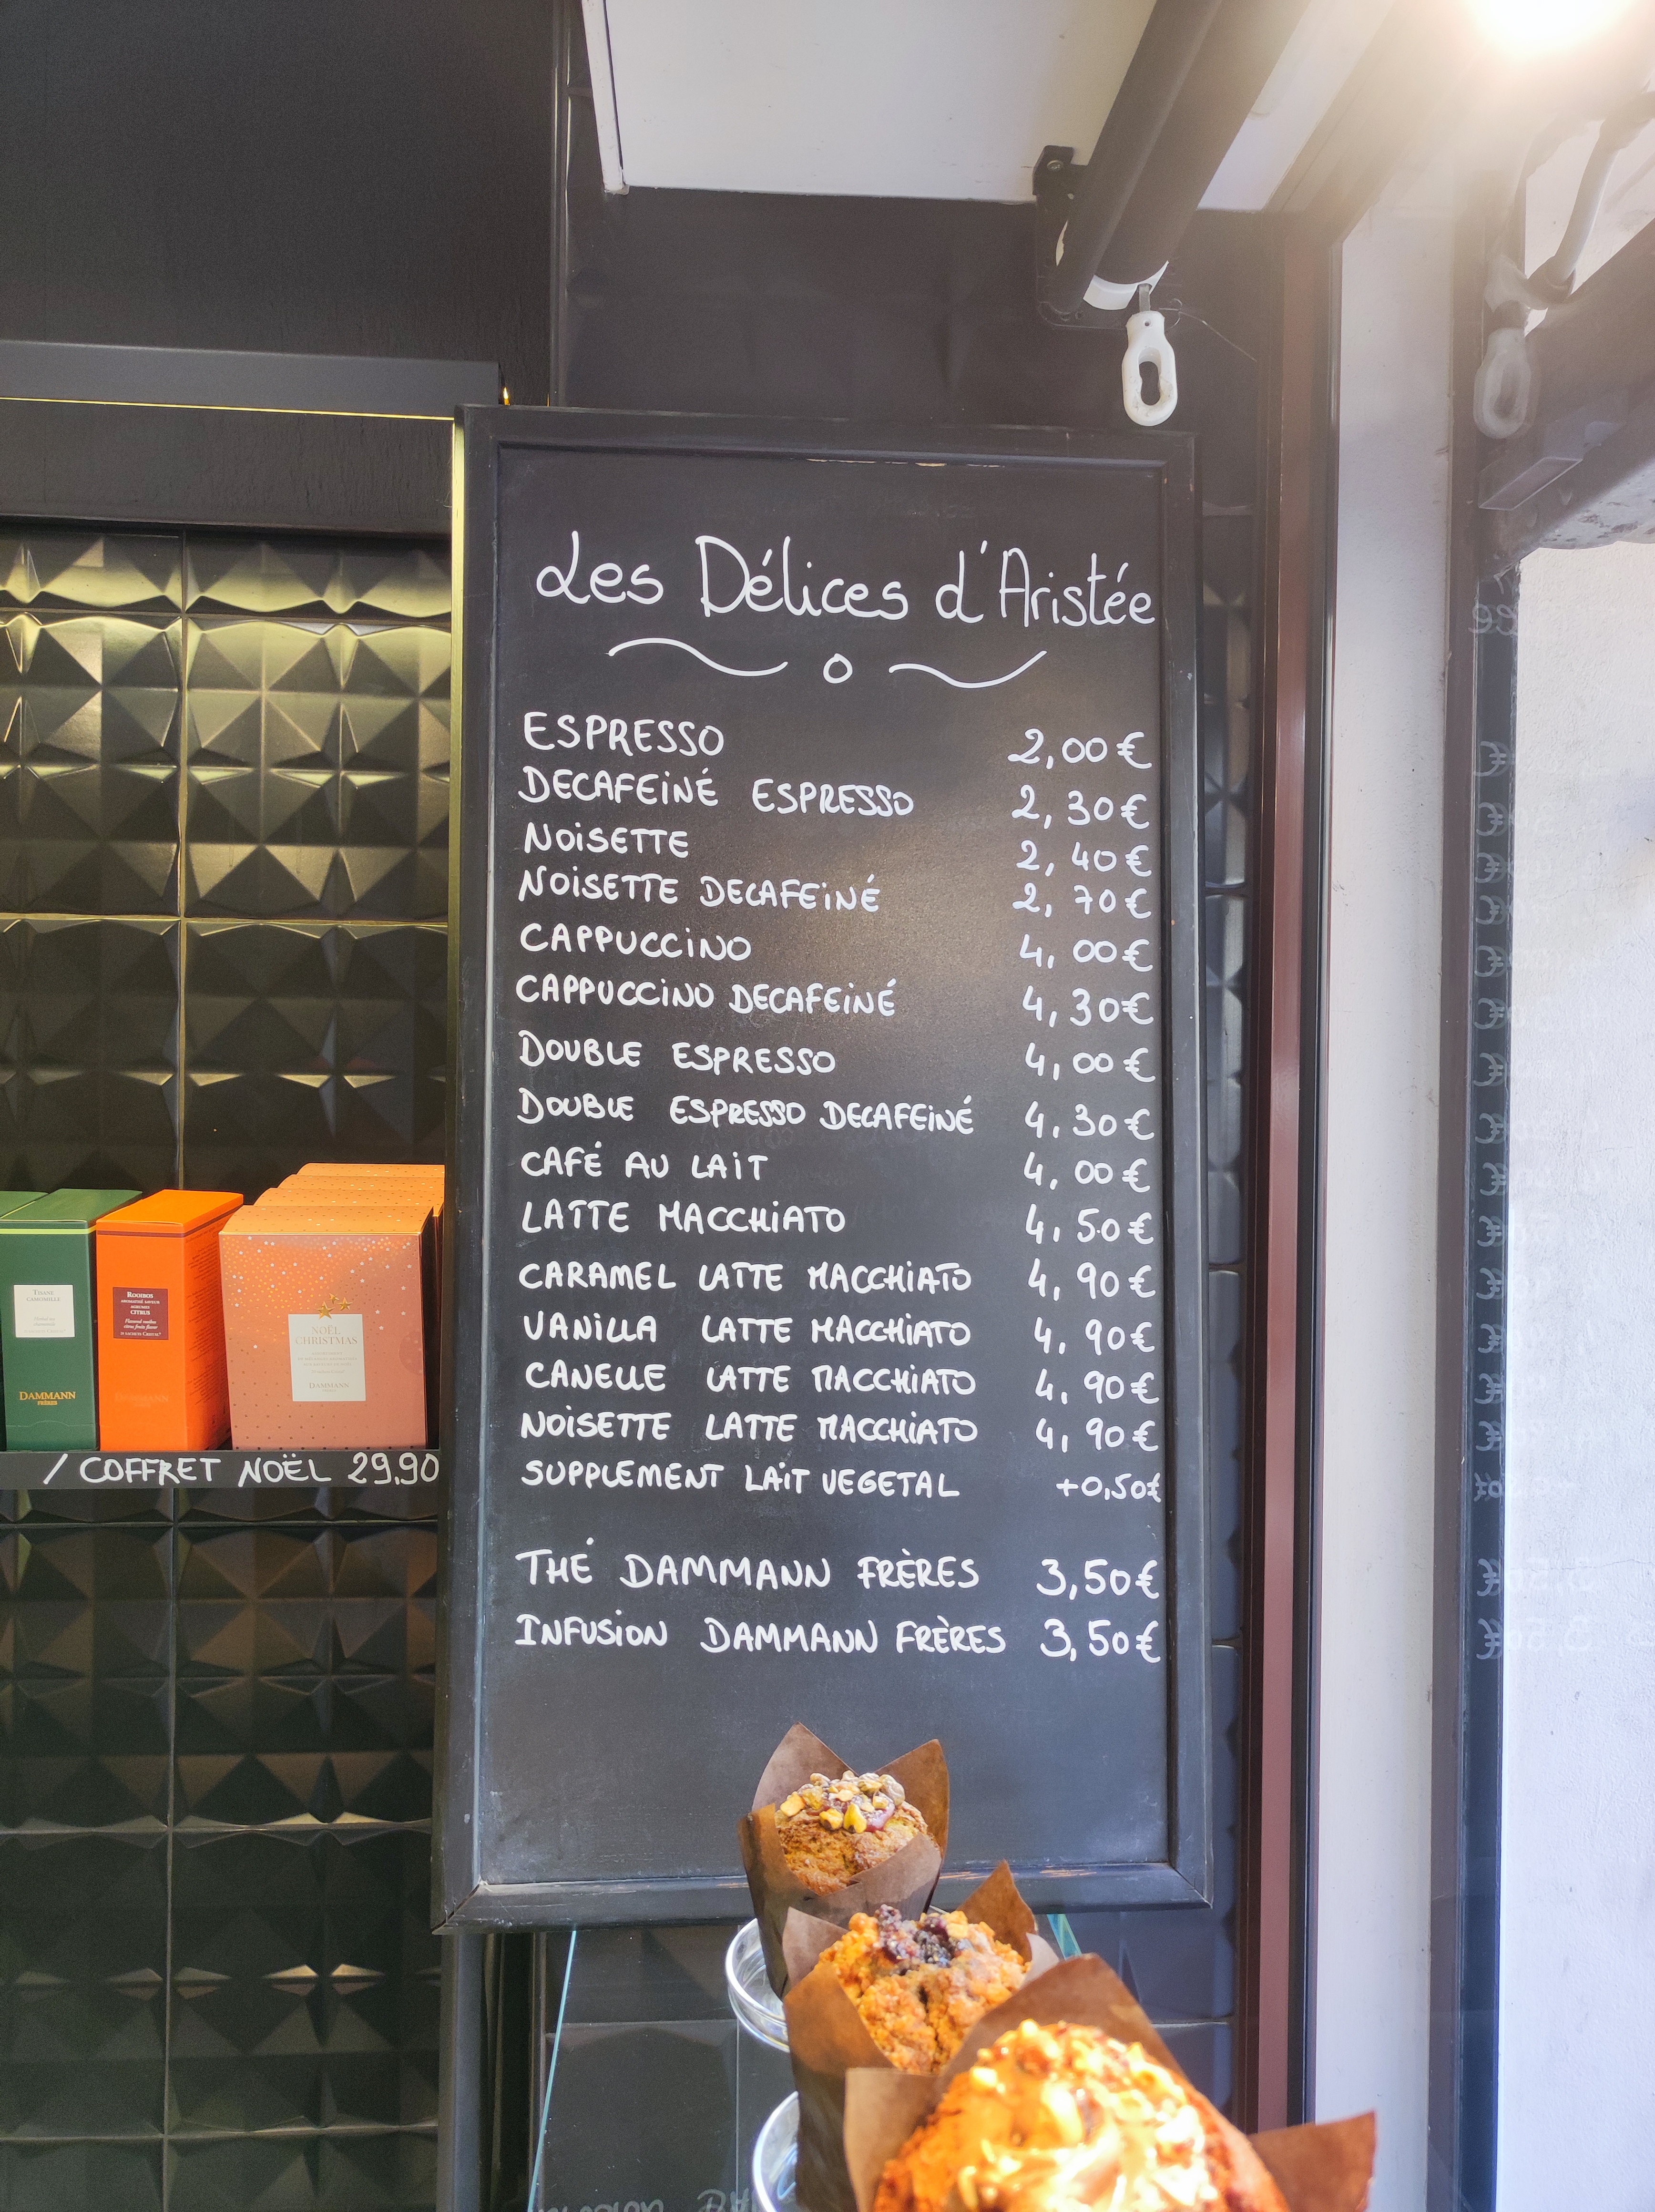 Les Délices d'Aristée
ESPRESSO 2,00€
DECAFEINÉ ESPRESSO 2,30€
NOISETTE 2,40€
NOISETTE DECAFEINÉ 2,70€
CAPPUCCINO 4,00€
CAPPUCCINO DECAFEINÉ 4,30€
DOUBLE ESPRESSO 4,00€
DOUBLE ESPRESSO DECAFEINÉ 4,30€
CAFÉ AU LAIT 4,00€
LATTE MACCHIATO 4,50€
CARAMEL LATTE MACCHIATO 4,90€
VANILLA LATTE MACCHIATO 4,90€
CANELLE LATTE MACCHIATO 4,90€
NOISETTE LATTE MACCHIATO 4,90€
SUPPLEMENT LAIT VEGETAL +0,50€
THÉ DAMMANN FRÈRES 3,50€
INFUSION DAMMANN FRÈRES 3,50€
TISANE
CAMOMILLE
DAMMANN
FRÈRES
ROOIBOS
AGRUMES
CITRUS
NOËL
CHRISTMAS
DAMMANN
/ COFFRET NOËL 29,90